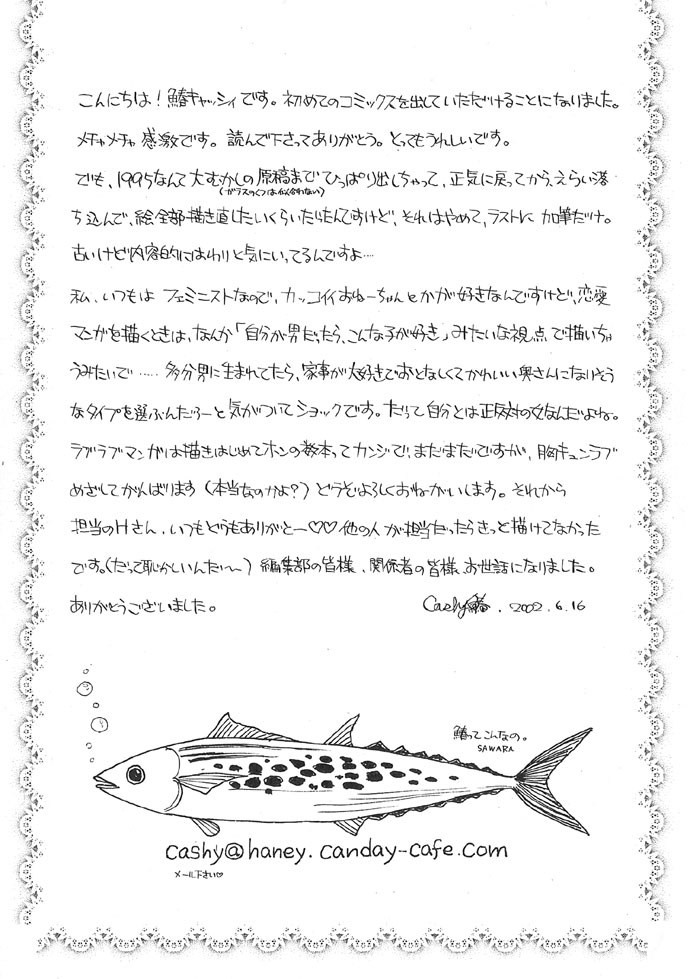 こんにちは！鰆キャッシィです。初めてのコミックスを出していただけることになりました。
メチャメチャ感激です。読んで下さってありがとう。とってもうれしいです。
でも、1995なんて大むかしの原稿までひっぱり出しちゃって、正気に戻ってから、えらい落
(ガラスのくつは似合わない)
ち込んで、絵全部描き直したいくらいだったんですけど、それはやめて、ラストに加筆だけ。
古いけど内容的にはわりと気にいってるんですよ…
私、いつもは フェミニストなので、カッコイイおねーちゃんとかが好きなんですけど、恋愛
マンガを描くときは、なんか「自分が男だったら、こんな子が好き」みたいな視点で描いちゃ
うみたいで…… 多分男に生まれてたら、家事が大好きでおとなしくてかわいい奥さんになりそう
なタイプを選ぶんだろーと気がついてショックです。だって自分とは正反対の女なんだよね。
ラブラブマンガは描きはじめてホンの数本ってカンジで、まだまだですが、胸キュンラブ
めざしてがんばります（本当なのかよ？）どうぞよろしくおねがいします。それから
担当のHさん、いつもどうもありがとー♡♡他の人が担当だったらきっと描けてなかった
です。(だって恥かしいんだ〜) 編集部の皆様、関係者の皆様、お世話になりました。
ありがとうございました。
Cashy鰆. 2002.6.16
鰆ってこんなの。
SAWARA
cashy@haney.canday-cafe.com
メール下さい♡